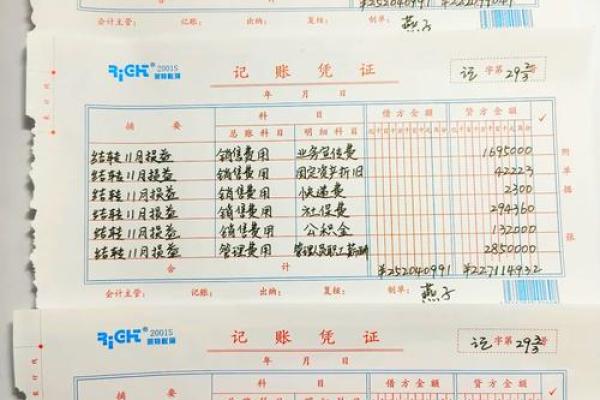 会计主管: 记账: 出纳: 复核: 制单: 燕子
RiGHT® 2001S
记账凭证
记 字第29 2/3号
年 月 日
摘要 科目 借方金额 贷方金额 ✓
总账科目 明细科目
结转11月损益 销售费用 业务宣传费 1695000
结转11月损益 销售费用 固定资产折旧 42223
结转11月损益 销售费用 快递费 2300
结转11月损益 销售费用 社保费 294360
结转11月损益 销售费用 公积金 132000
结转11月损益 管理费用 管理人员职工薪酬 2850000
合计 ¥252040991 ¥227114932
附单据 张
会计主管: 记账: 出纳: 复核: 制单: 燕子
RiGHT® 2001S
记账凭证
记 字第29 3/3号
年 月 日
摘要 科目 借方金额 贷方金额